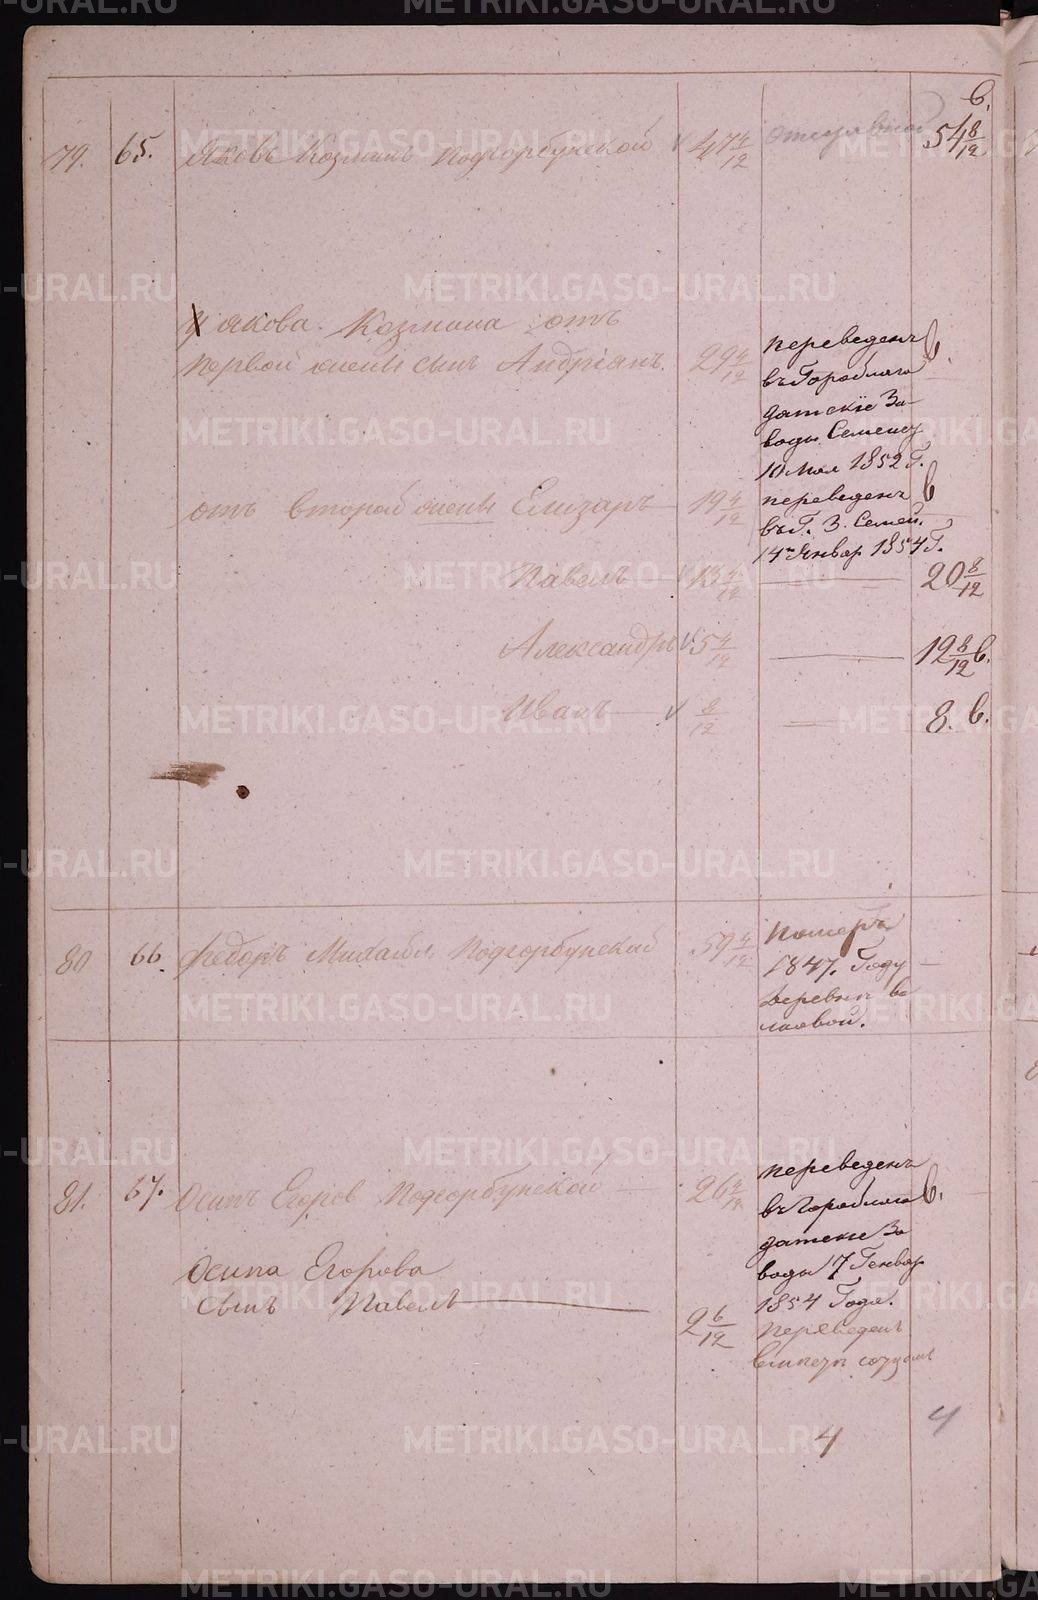 в.
79. 65. Яковъ Козминъ Подгорбунской v 47 4/12 отставной 54 8/12
У якова Козмина отъ
первой жены сынъ Андріанъ. 29 4/12
переведенъ в.
въ Гороблаго
датскіе За-
воды
10 Мая 1852 Г.
отъ второй жены Елизаръ 19 4/12
переведенъ в
въ Г. З. Семей.
14 Январ 1854 Г.
Павелъ v 13 4/12 — 20 8/12
Александръ v 5 4/12 — 12 8/12 в.
Иванъ — v 8/12 — 8. в.
80 66. Федоръ Михайлъ Подгорбунский 59 4/12
Померъ
1847. Году
деревни
81. 67. Осипъ Егоровъ Подгорбунской 26 4/12
переведенъ
въ Гороблаго в.
датскіе За
воды 17 Генвар
1854 Года.
Осипа Егорова
сынъ Павелъ 2 6/12
переведенъ
4 4
METRIKI.GASO-URAL.RU